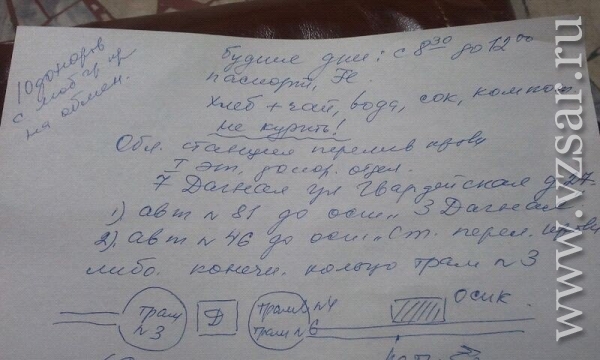 10 доноров
с люб. гр. кр.
на обмен.
будние дни: с 8 30 до 12 00
паспорт,
хлеб + чай, вода, сок, компот
не курить!
Обл. станция перелив. крови
I эт. донор. отдел.
7 Дачная ул Гвардейская д 27
1) авт N 81 до ост „ 3 Дачная
2) авт N 46 до ост „ Ст. перел. крови
либо конечн. кольцо трам N 3
трам N 3
Д
трам N 4
трам N 6
Осик.
www.vzsar.ru